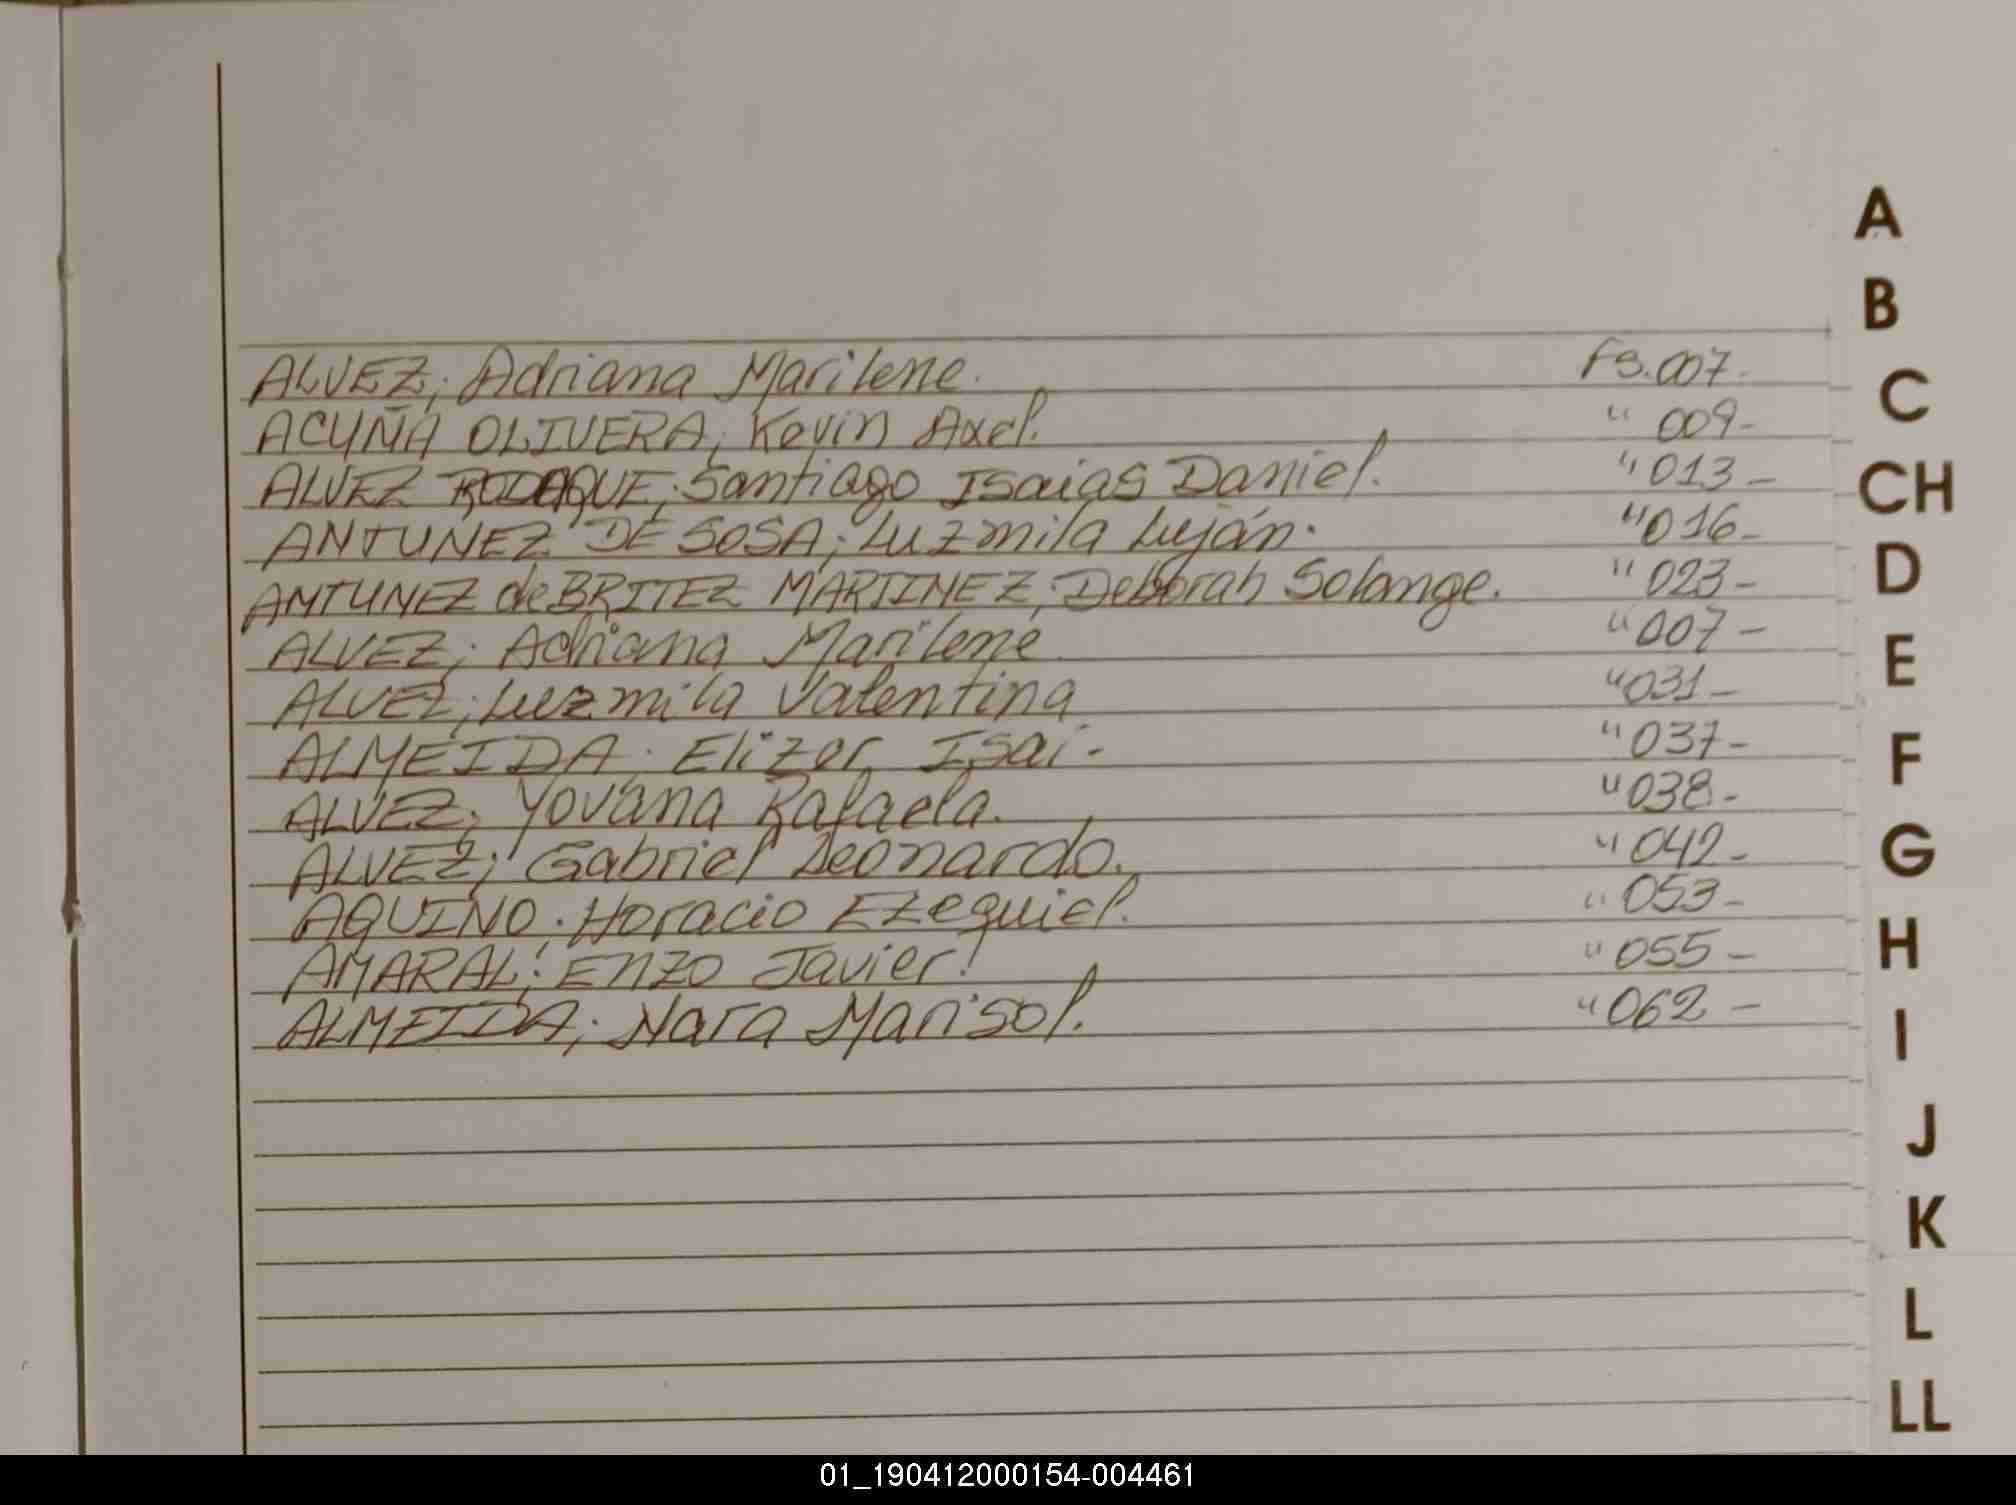 ALVEZ; Adriana Marilene. Fs. 007-
ACUÑA OLIVERA; Kevin Axel. " 009-
ALVEZ RODAQUE; Santiago Isaias Daniel. " 013-
ANTUNEZ DE SOSA; Luzmila Luján. " 016-
ANTUNEZ de BRITEZ MARTINEZ; Deborah Solange. " 023-
ALVEZ; Adriana Marilene " 007-
ALVEZ; Luzmila Valentina " 031-
ALMEIDA; Elizer Isai- " 037-
ALVEZ; Yovana Rafaela. " 038-
ALVEZ; Gabriel Leonardo. " 042-
AQUINO; Horacio Ezequiel. " 053-
AMARAL; Enzo Javier. " 055-
ALMEIDA; Nara Marisol. " 062-
A
B
C
CH
D
E
F
G
H
I
J
K
L
LL
01_190412000154-004461